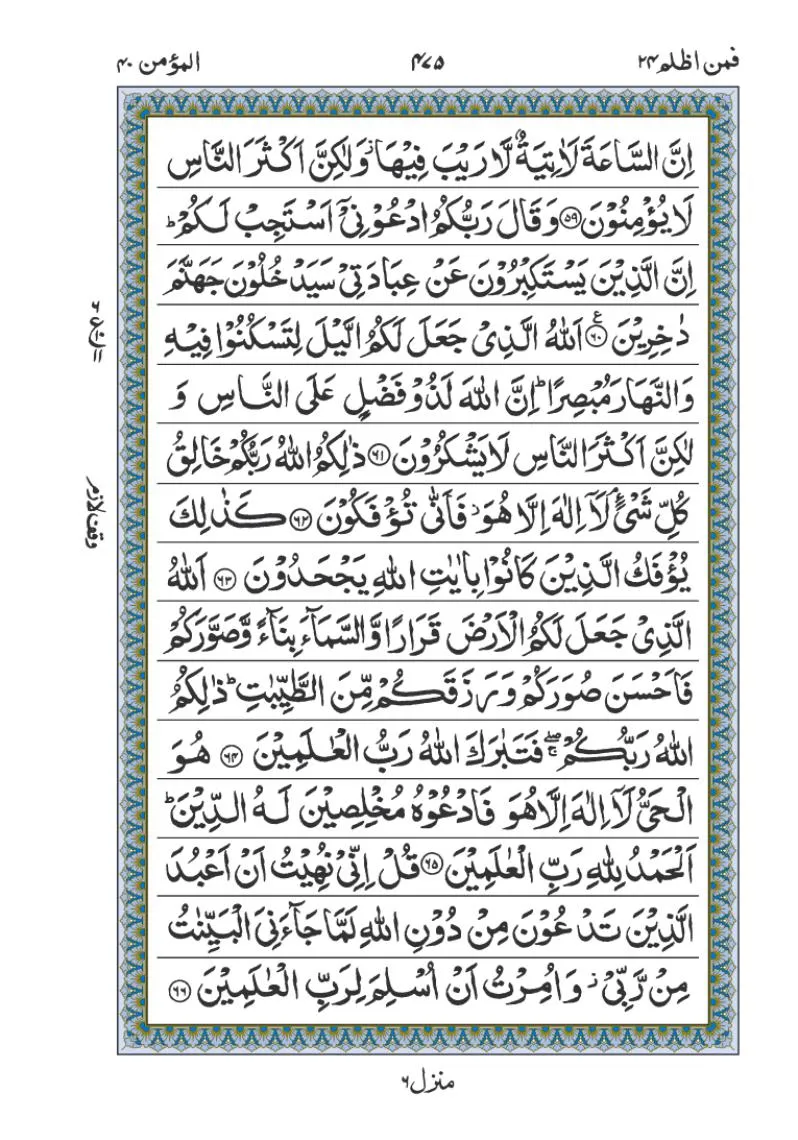 فمن اظلم ۲۴
۴۷۵
المؤمن ۴۰
اِنَّ السَّاعَةَ لَاٰتِيَةٌ لَّا رَيْبَ فِيْهَا ؗ وَلٰكِنَّ اَكْثَرَ النَّاسِ
لَا يُؤْمِنُوْنَ ۝۵۹ وَ قَالَ رَبُّكُمُ ادْعُوْنِيْۤ اَسْتَجِبْ لَكُمْ ؕ
اِنَّ الَّذِيْنَ يَسْتَكْبِرُوْنَ عَنْ عِبَادَتِيْ سَيَدْخُلُوْنَ جَهَنَّمَ
دٰخِرِيْنَ ۝۶۰ ع اَللّٰهُ الَّذِيْ جَعَلَ لَكُمُ الَّيْلَ لِتَسْكُنُوْا فِيْهِ
وَالنَّهَارَ مُبْصِرًا ؕ اِنَّ اللّٰهَ لَذُوْ فَضْلٍ عَلَى النَّاسِ وَ
لٰكِنَّ اَكْثَرَ النَّاسِ لَا يَشْكُرُوْنَ ۝۶۱ ذٰلِكُمُ اللّٰهُ رَبُّكُمْ خَالِقُ
كُلِّ شَيْءٍ ۘ لَاۤ اِلٰهَ اِلَّا هُوَ ۚ فَاَنّٰى تُؤْفَكُوْنَ ۝۶۲ كَذٰلِكَ
يُؤْفَكُ الَّذِيْنَ كَانُوْا بِاٰيٰتِ اللّٰهِ يَجْحَدُوْنَ ۝۶۳ اَللّٰهُ
الَّذِيْ جَعَلَ لَكُمُ الْاَرْضَ قَرَارًا وَّالسَّمَآءَ بِنَآءً وَّصَوَّرَكُمْ
فَاَحْسَنَ صُوَرَكُمْ وَ رَزَقَكُمْ مِّنَ الطَّيِّبٰتِ ؕ ذٰلِكُمُ
اللّٰهُ رَبُّكُمْ ۖۚ فَتَبٰرَكَ اللّٰهُ رَبُّ الْعٰلَمِيْنَ ۝۶۴ هُوَ
الْحَيُّ لَاۤ اِلٰهَ اِلَّا هُوَ فَادْعُوْهُ مُخْلِصِيْنَ لَهُ الدِّيْنَ ؕ
اَلْحَمْدُ لِلّٰهِ رَبِّ الْعٰلَمِيْنَ ۝۶۵ قُلْ اِنِّيْ نُهِيْتُ اَنْ اَعْبُدَ
الَّذِيْنَ تَدْعُوْنَ مِنْ دُوْنِ اللّٰهِ لَمَّا جَآءَنِيَ الْبَيِّنٰتُ
مِنْ رَّبِّيْ ؗ وَ اُمِرْتُ اَنْ اُسْلِمَ لِرَبِّ الْعٰلَمِيْنَ ۝۶۶
وقف لازم
منزل ۶